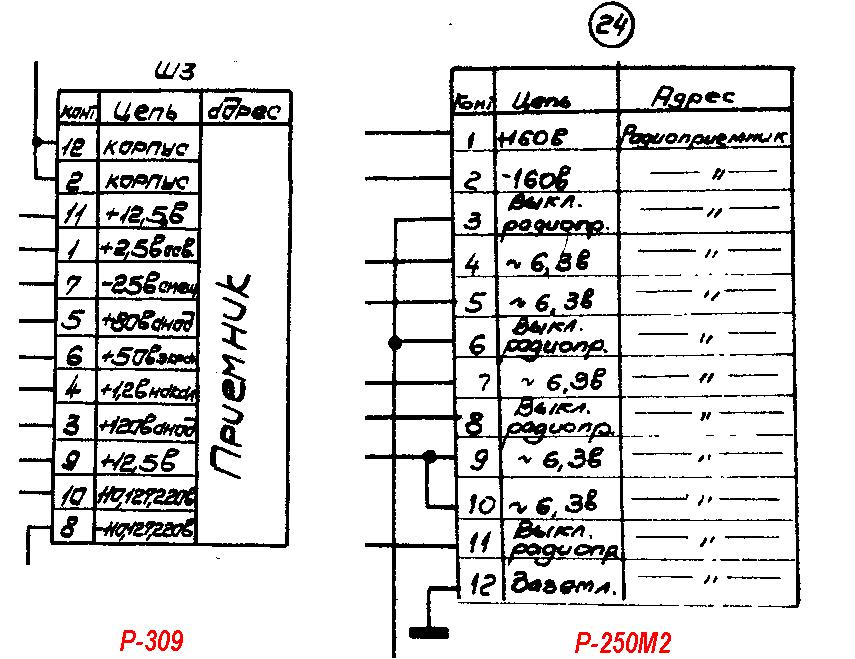 24
Ш3
Конт Цепь Адрес
12 корпус
2 корпус
11 +12,5в
1 +2,5в осв.
7 -25в смещ
5 +80в анод
6 +50в экран
4 +1,2в накал
3 +120в анод
9 +12,5в
10 110,127,220в
8 110,127,220в
Приемник
Р-309
Конт Цепь Адрес
1 +160в Радиоприемник
2 -160в — " —
3 Выкл. радиопр. — " —
4 ~ 6,3в — " —
5 ~ 6,3в — " —
6 Выкл. радиопр. — " —
7 ~ 6,3в — " —
8 Выкл. радиопр. — " —
9 ~ 6,3в — " —
10 ~ 6,3в — " —
11 Выкл. радиопр — " —
12 Заземл. — " —
Р-250М2